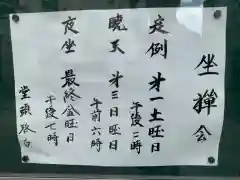 坐禅会
定例 才一土旺日
午後二時
暁天 才三日旺日
午前六時
夜坐 最終金旺日
午後七時
堂頭敬白